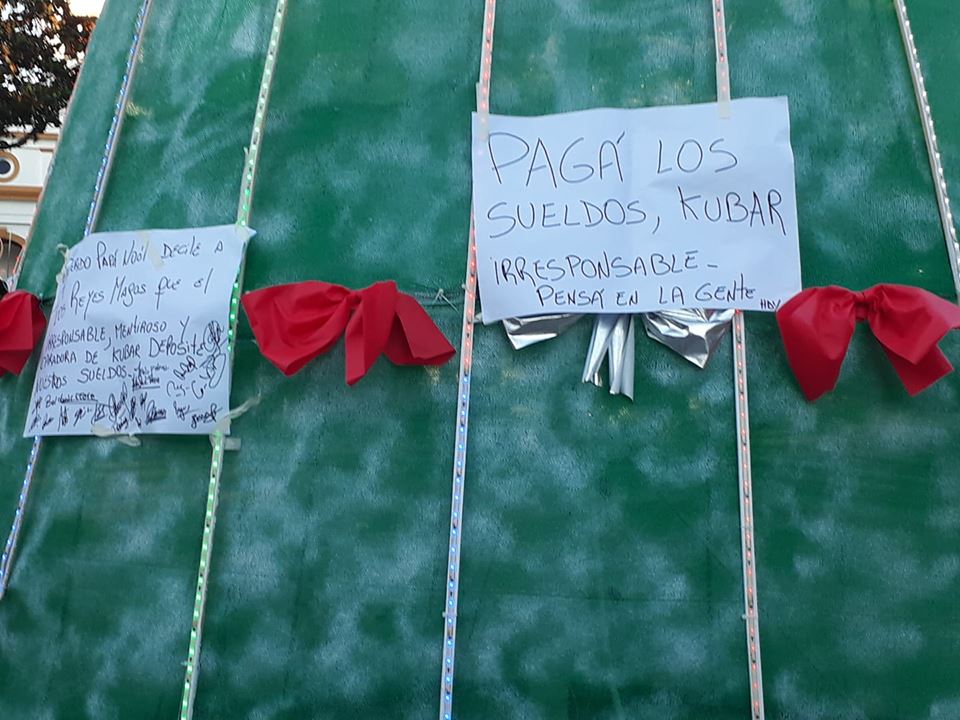 PAPÁ NOÉL DECILE A
REYES MAGOS QUE EL
IRRESPONSABLE, MENTIROSO Y
DE KUBAR DEPOSITE
SUELDOS.-
PAGÁ LOS
SUELDOS, KUBAR
IRRESPONSABLE_
PENSÁ EN LA GENTE